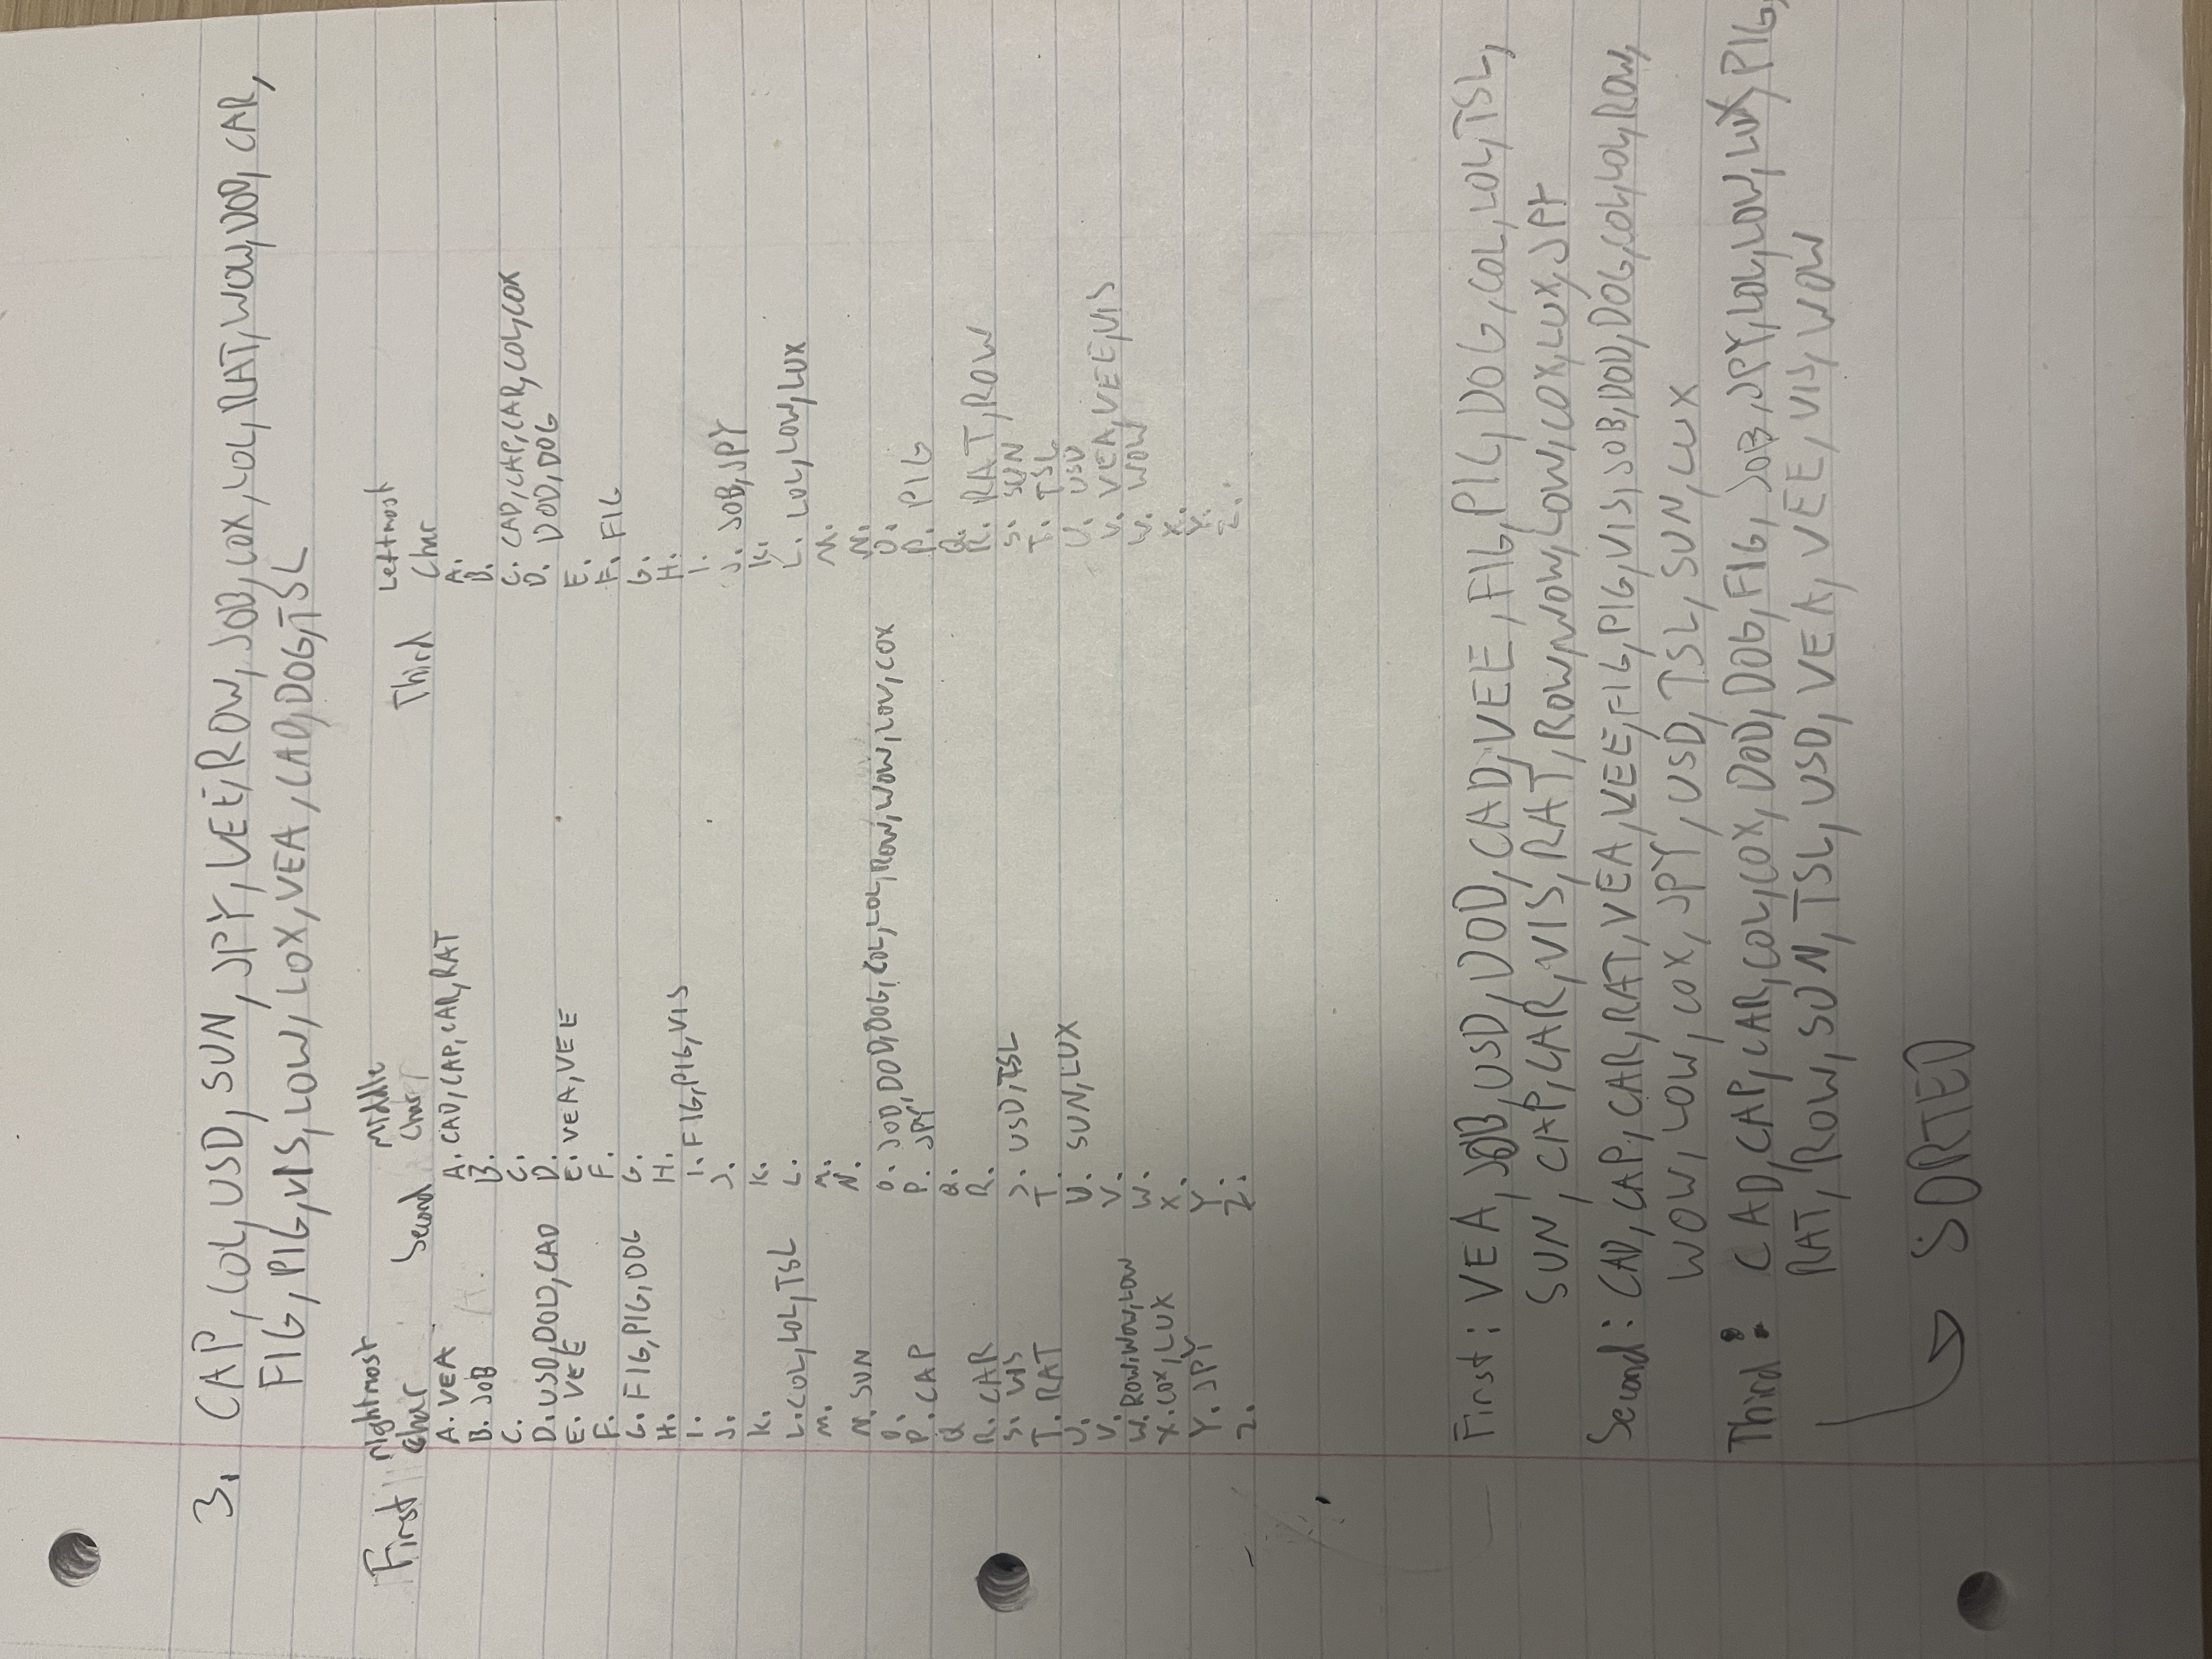 3. CAP, COL, USD, SUN, JPY, VEE, ROW, JOB, COX, LOL, RAT, WOW, DOD, CAR,
FIG, PIG, VIS, LOW, LOX, VEA, CAD, DOG, TSL
First rightmost char
Second Middle char
Third Leftmost Char
A. VEA
B. JOB
C.
D. USD, DOD, CAD
E. VEE
F.
G. FIG, PIG, DOG
H.
I.
J.
K.
L. COL, LOL, TSL
M.
N. SUN
O.
P. CAP
Q
R. CAR
S. VIS
T. RAT
U.
V.
W. ROW, WOW, LOW
X. COX, LUX
Y. JPY
Z.
A. CAD, CAP, CAR, RAT
B.
C.
D.
E. VEA, VEE
F.
G.
H.
I. FIG, PIG, VIS
J.
K.
L.
M.
N.
O. JOD, DOD, DOG, COL, LOL, ROW, WOW, LOW, COX
P. JPY
Q.
R.
S. USD, TSL
T.
U. SUN, LUX
V.
W.
X.
Y
Z.
A.
B.
C. CAD, CAP, CAR, COL, COX
D. DOD, DOG
E.
F. FIG
G.
H.
I.
J. JOB, JPY
K.
L. LOL, LOW, LUX
M.
N.
O.
P. PIG
Q.
R. RAT, ROW
S. SUN
T. TSL
U. USD
V. VEA, VEE, VIS
W. WOW
X.
Y.
Z.
First: VEA, JOB, USD, DOD, CAD, VEE, FIG, PIG, DOG, COL, LOL, TSL,
SUN, CAP, CAR, VIS, RAT, ROW, WOW, LOW, COX, LUX, JPY
Second: CAD, CAP, CAR, RAT, VEA, VEE, FIG, PIG, VIS, JOB, DOD, DOG, COL, LOL, ROW,
WOW, LOW, COX, JPY, USD, TSL, SUN, LUX
Third: CAD, CAP, CAR, COL, COX, DOD, DOG, FIG, JOB, JPY, LOL, LOW, LUX, PIG,
RAT, ROW, SUN, TSL, USD, VEA, VEE, VIS, WOW
SORTED